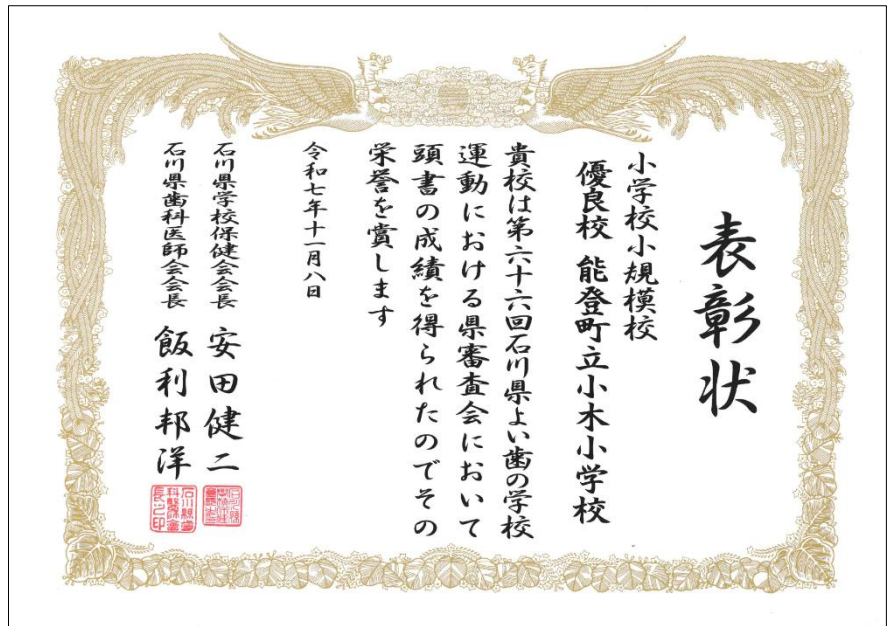 表彰状
小学校小規模校
優良校 能登町立小木小学校
貴校は第六十六回石川県よい歯の学校
運動における県審査会において
頭書の成績を得られたのでその
栄誉を賞します
令和七年十一月八日
石川県学校保健会会長 安田健二
石川県歯科医師会会長 飯利邦洋